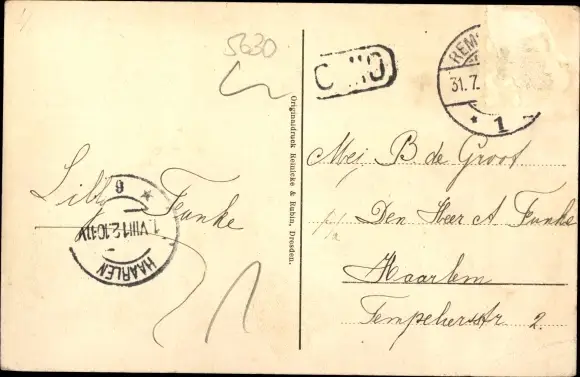 5630
REMS
31.7.
* 1
Originaldruck Reinicke & Rubin, Dresden.
Mej. B de Groot
p/a Den Heer A Funke
Haarlem
Tempelierstr 2.
Funke
6 *
1.VIII 12.10-11V
HAARLEM